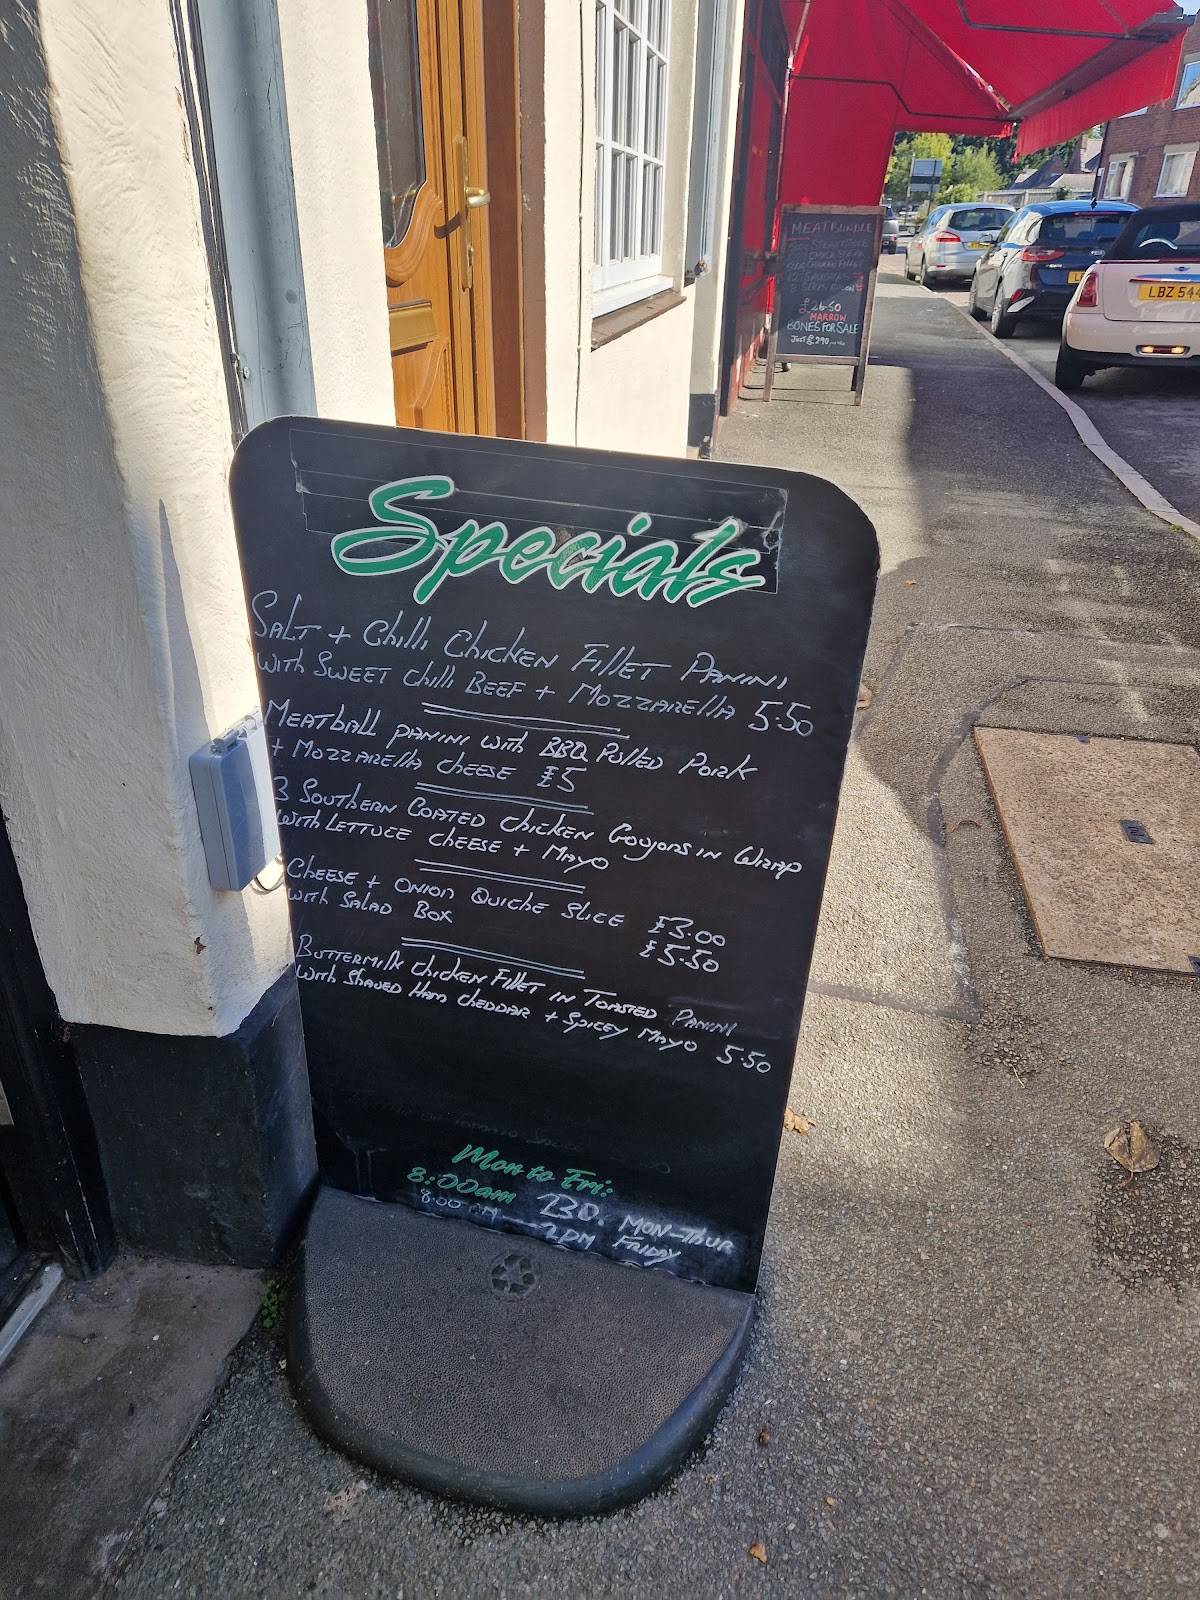 MEAT BUNDLE
£26.50
MARROW
BONES FOR SALE
LBZ 544
Specials
SALT + Chilli Chicken Fillet Panini
with Sweet Chilli Beef + Mozzarella 5.50
Meatball panini with BBQ Pulled Pork
+ Mozzarella cheese £5
3 Southern Coated chicken Goujons in Wrap
with Lettuce cheese + Mayo
Cheese + onion Quiche slice £3.00
with Salad Box £5.50
Buttermilk chicken Fillet in Toasted Panini
with Shaved Ham cheddar + Spicey Mayo 5.50
Mon to Fri:
8:00am
MON-Thur
2PM FRIDAY